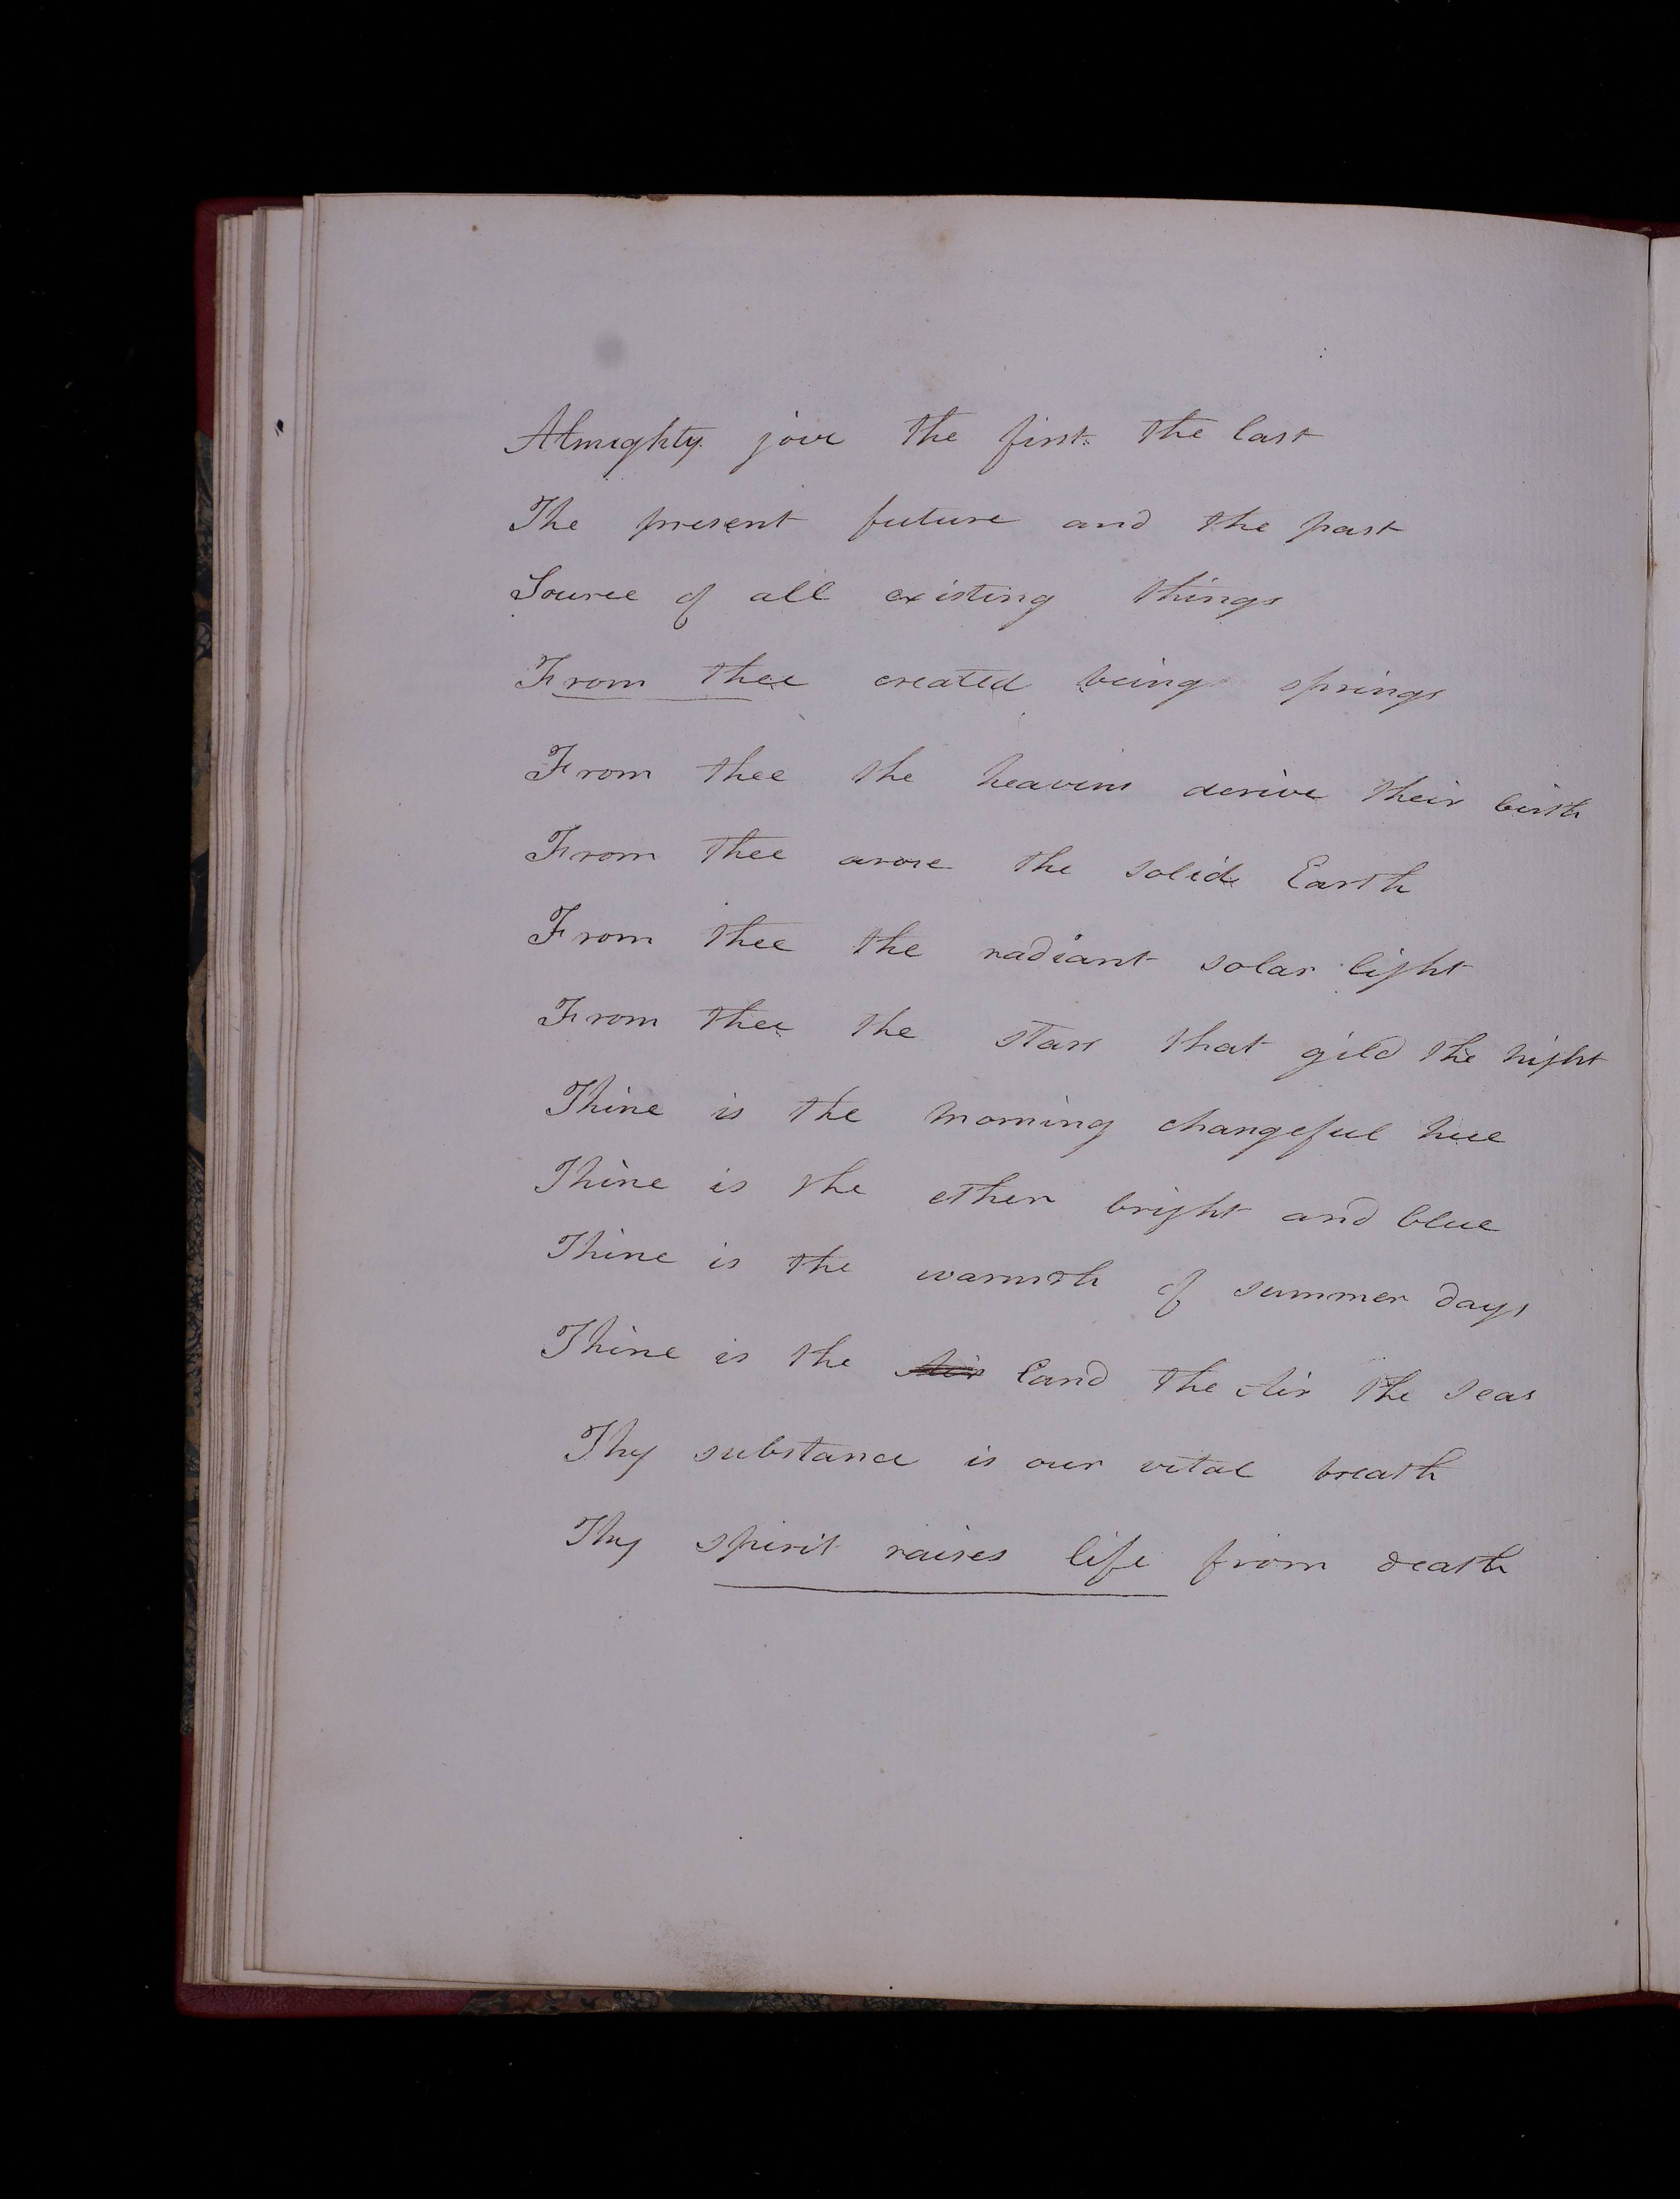 Almighty jove the first the last
The present future and the past
Source of all existing things
From thee created being springs
From thee the heavens derive their birth
From thee arose the solid Earth
From thee the radiant solar light
From thee the stars that gild the night
Thine is the morning changeful hue
Thine is the ether bright and blue
Thine is the warmth of summer days
Thine is the Air Land the Air the seas
Thy substance is our vital breath
Thy spirit raises life from death